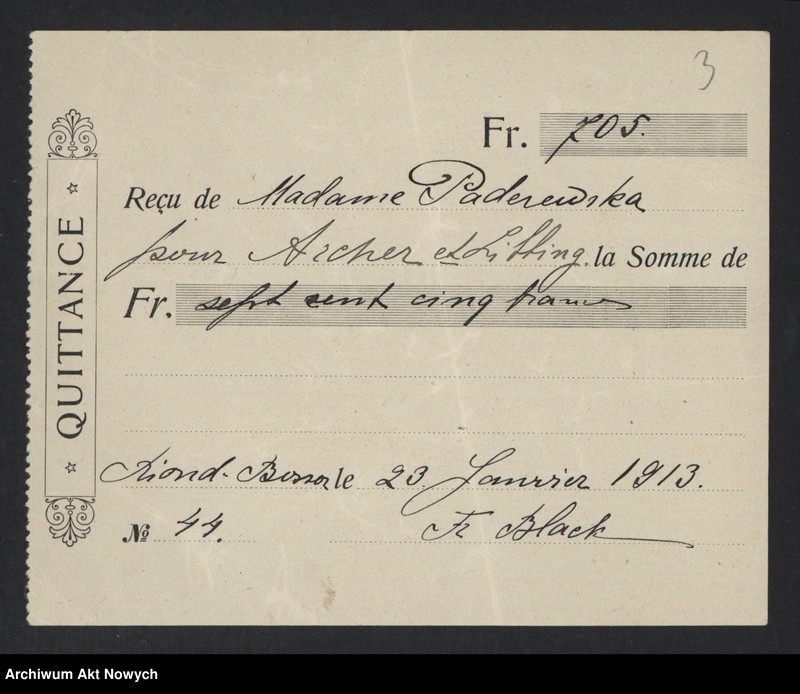 3
Fr. 705.
Reçu de Madame Paderewska
pour Archer et Libbing. la Somme de
Fr. sept cent cinq francs
QUITTANCE
Riond-Bosson, le 23 Janvier 1913.
№ 44. Fr Black
Archiwum Akt Nowych